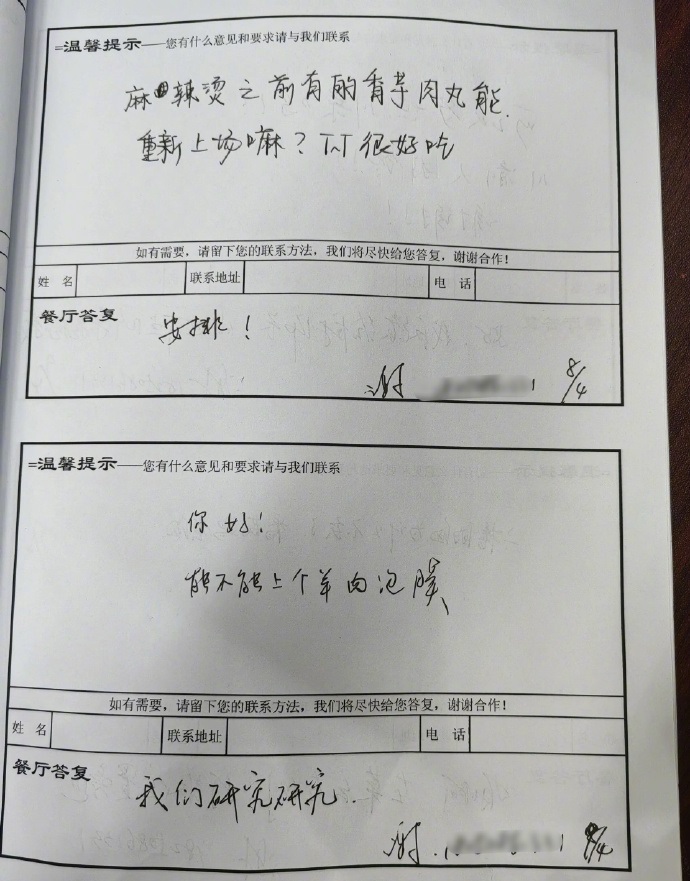 =温馨提示——您有什么意见和要求请与我们联系
麻辣烫之前有的香芋肉丸能
重新上场嘛？TAT很好吃
如有需要，请留下您的联系方法，我们将尽快给您答复，谢谢合作！
姓 名 联系地址 电 话
餐厅答复
安排！
谢 8/4
=温馨提示——您有什么意见和要求请与我们联系
你好！
能不能上个羊肉泡膜
如有需要，请留下您的联系方法，我们将尽快给您答复，谢谢合作！
姓 名 联系地址 电 话
餐厅答复
我们研究研究.
谢 8/4